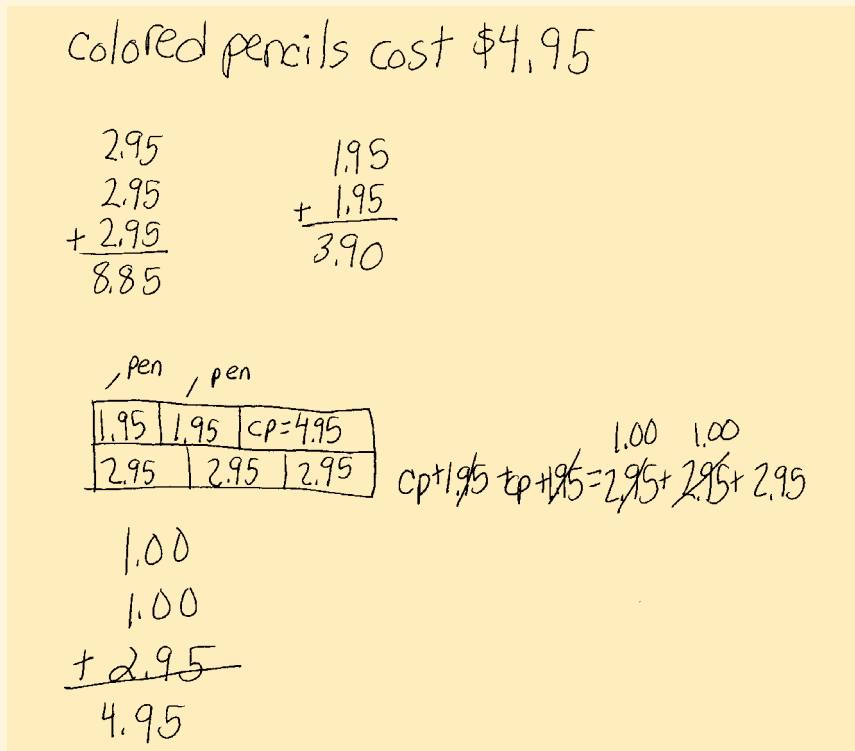 colored pencils cost $4.95
2.95
2.95
+ 2.95
8.85
1.95
+ 1.95
3.90
, pen , pen
1.95 1.95 cp=4.95
2.95 2.95 2.95
1.00 1.00
cp+1.95+cp+1.95=2.95+2.95+2.95
1.00
1.00
+ 2.95
4.95